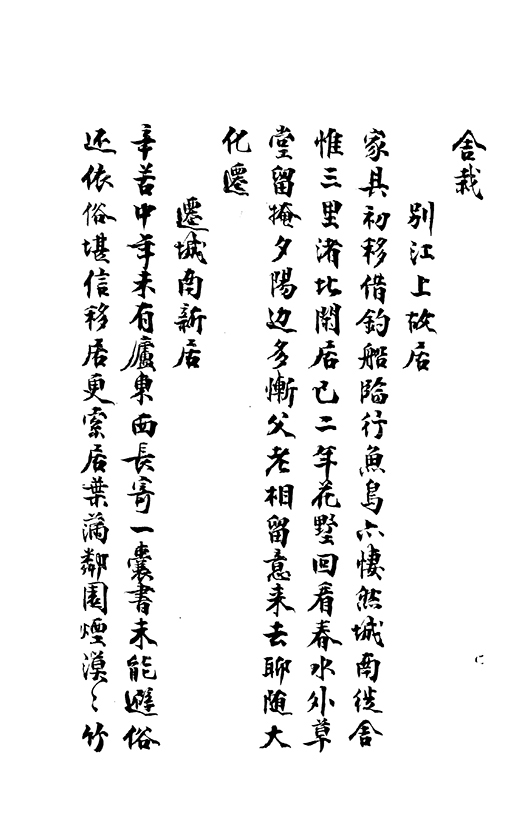 舍栽
別江上故居
家具初移借釣船臨行魚鳥亦悽然城南徙舍
惟三里渚北閑居已二年花墅回看春水外草
堂留掩夕陽边多慚父老相留意来去聊随大
化遷
遷城南新居
辛苦中年未有廬東西長寄一囊書未能避俗
还依俗堪信移居更索居葉滿鄰園煙漠〻竹